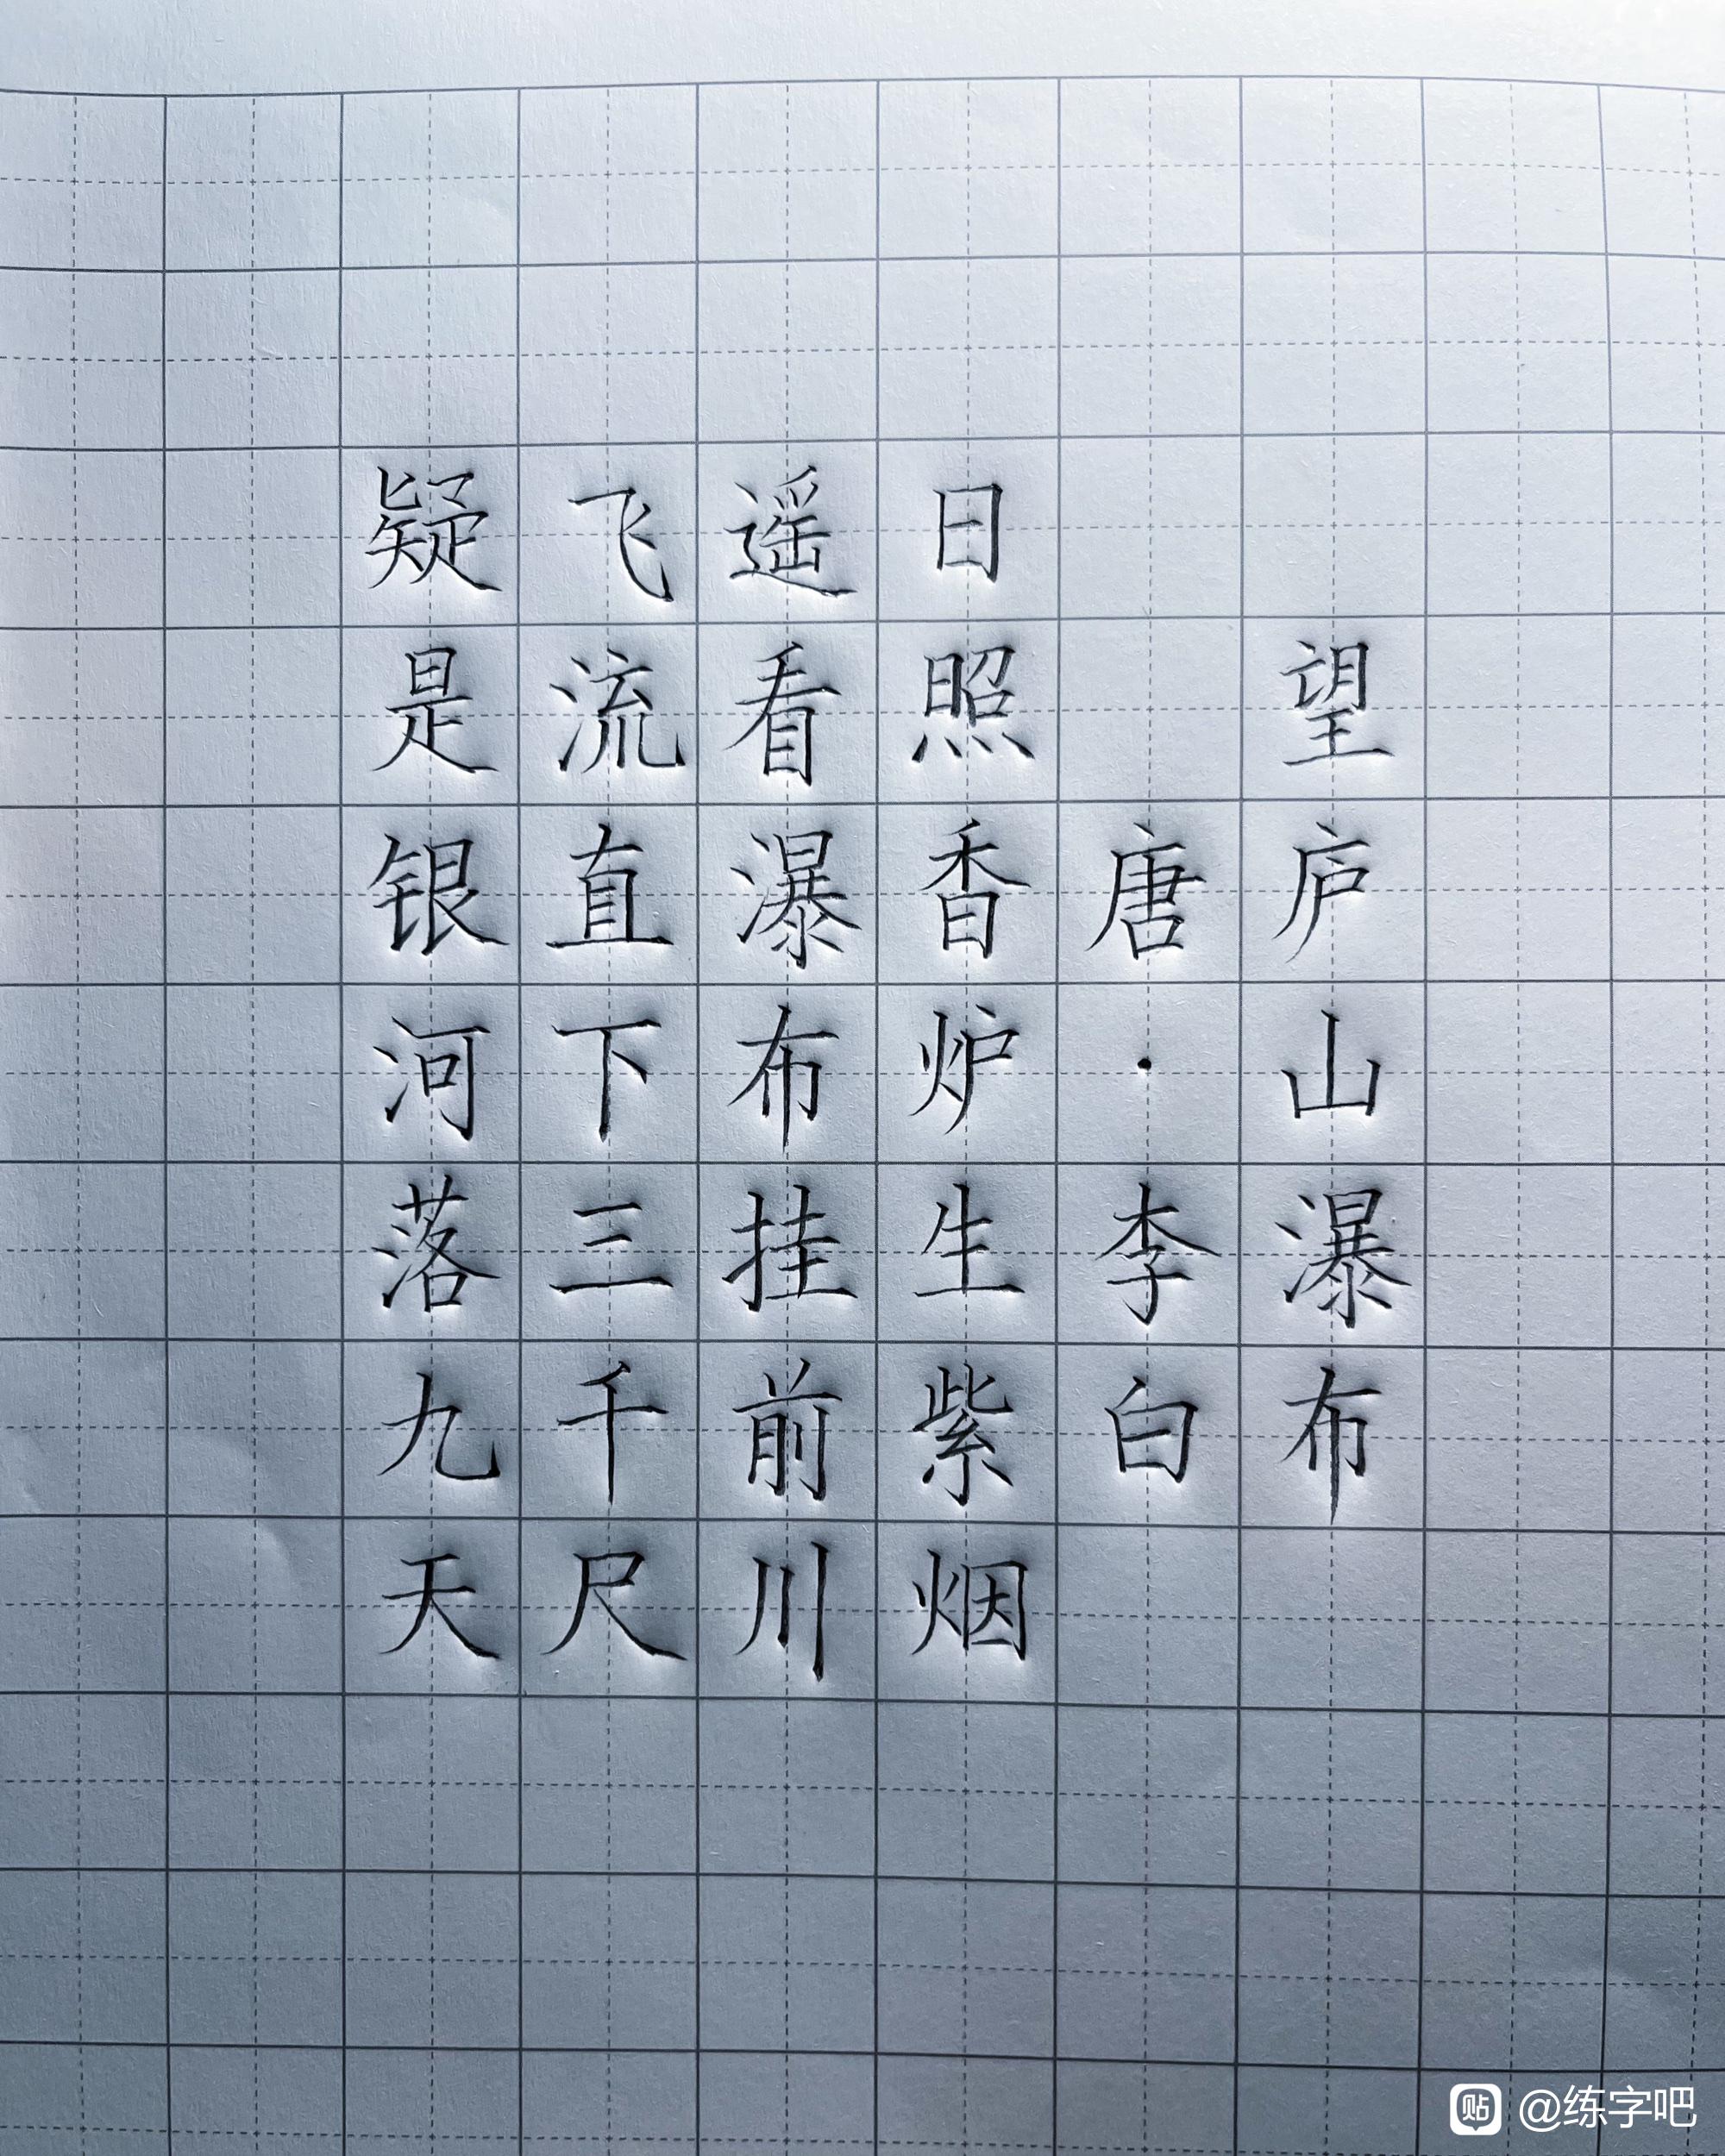 望庐山瀑布
唐·李白
日照香炉生紫烟
遥看瀑布挂前川
飞流直下三千尺
疑是银河落九天
贴 @练字吧